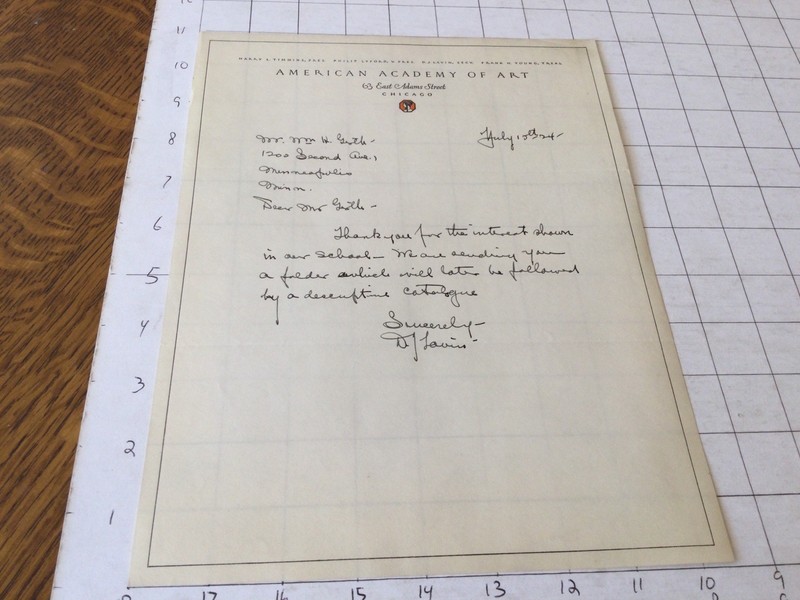 HARRY L. TIMMINS, PRES. PHILIP LYFORD, V. PRES. D. J. LAVIN, SECY. FRANK H. YOUNG, TREAS.
AMERICAN ACADEMY OF ART
63 East Adams Street
CHICAGO
July 15th 24-
Mr. Wm H Groth-
1200 Second Ave.,
Minneapolis
Minn.
Dear Mr Groth-
Thank you for the interest shown
in our school- We are sending you
a folder which will later be followed
by a descriptive catalogue
Sincerely-
DJ Lavin-
11
10
9
8
7
6
5
4
3
2
1
17
16
15
14
13
12
11
10
9